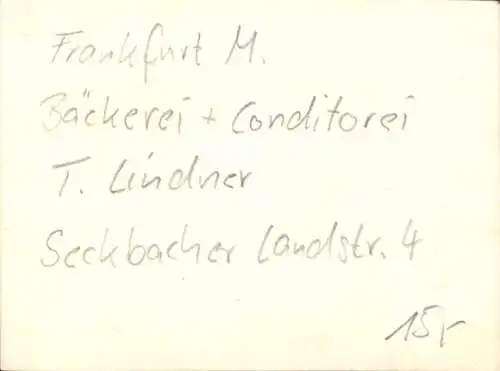 Frankfurt M.
Bäckerei + Conditorei
T. Lindner
Seckbacher Landstr. 4
15,-